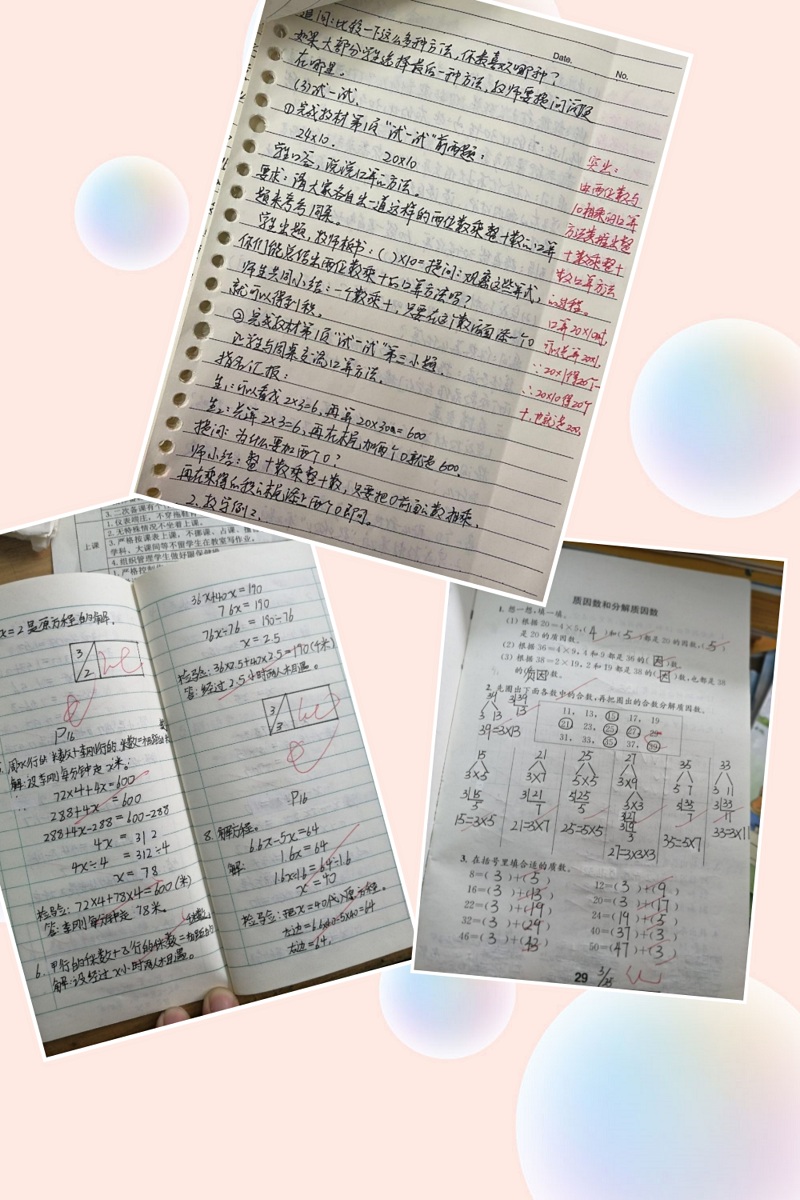 追问：比较一下这么多种方法，你最喜欢哪种？
如果大部分学生选择最后一种方法，教师要提问河段
在哪里。
Date.
No.
(3)试一试。
①完成教材第1页“试一试”前两题：
24×10. 20×10
学生口答，说说口算的方法。
要求：请大家各自出一道这样的两位数乘整十数的口算
题来考考同桌。
学生出题，教师板书：（ ）×10= 提问：观察这些算式，
你们能总结出两位数乘十的口算方法吗？
师生共同小结：一个数乘十，只要在这个数后面添一个0
就可以得到积。
②完成教材第1页“试一试”第三小题。
让学生与同桌交流口算方法。
指名汇报：
生1：可以看成2×3=6，再算20×30=600
生2：先算2×3=6，再在末尾加两个0就是600.
提问：为什么要加两个0？
师小结：整十数乘整十数，只要把0前面的数相乘，
再在乘得的积的末尾添上两个0即可。
2.教学例2.
突出：
由两位数与
10相乘的口算
方法类推出整
十数乘整十
数口算方法
的过程。
口算20×10时，
可以先算20×1,
∴20×1得20个一
∴20×10得20个
十，也就是200
3.二次备课有
上课
1.仪表端庄，不穿拖鞋
2.无特殊情况不坐着上课。
3.严格按课表上课，不挪课、占课、
学科、大课间等不留学生在教室写作业。
4.组织管理学生做好眼保健操
x=2是原方程的解。
3/2
P16
解：设李刚每分钟走x米。
72×4+4x=600
288+4x=600
288+4x-288=600-288
4x=312
4x÷4=312÷4
x=78
检验：72×4+78×4=600(米)
答：李刚每分钟走78米。
6、甲行的米数+乙行的米数=相距的米数
解：设经过x小时两人相遇。
36x+40x=190
76x=190
76x÷76=190÷76
x=2.5
检验：36×2.5+40×2.5=190(千米)
答：经过2.5小时两人相遇。
3/3
P16
8.解方程。
6.6x-5x=64
解：1.6x=64
1.6x÷1.6=64÷1.6
x=40
检验：把x=40代入原方程。
左边=6.6×40-5×40=64
右边=64.
质因数和分解质因数
1. 想一想，填一填。
(1) 根据20=4×5，(4)和(5)都是20的因数，(5)
是20的质因数。
(2) 根据36=4×9，4和9都是36的(因)数。
(3) 根据38=2×19，2和19都是38的(因)数，也都是38
的(质因)数。
2. 先圈出下面各数中的合数，再把圈出的合数分解质因数。
39 3|39
3 13 13
39=3×13
11，13，15，17，19
21，23，25，27，29
31，33，35，37，39
15 21 25 27 35 33
3×5 3×7 5×5 3×9 5 7 3 11
3×3
3|15 3|21 5|25 3|27 5|35 3|33
5 7 5 3|9 7 11
3
15=3×5 21=3×7 25=5×5 27=3×3×3 35=5×7 33=3×11
3. 在括号里填合适的质数。
8=(3)+(5) 12=(3)+(9)
16=(3)+(13) 20=(3)+(17)
22=(3)+(19) 24=(19)+(5)
32=(3)+(29) 40=(37)+(3)
46=(3)+(43) 50=(47)+(3)
29 3/25